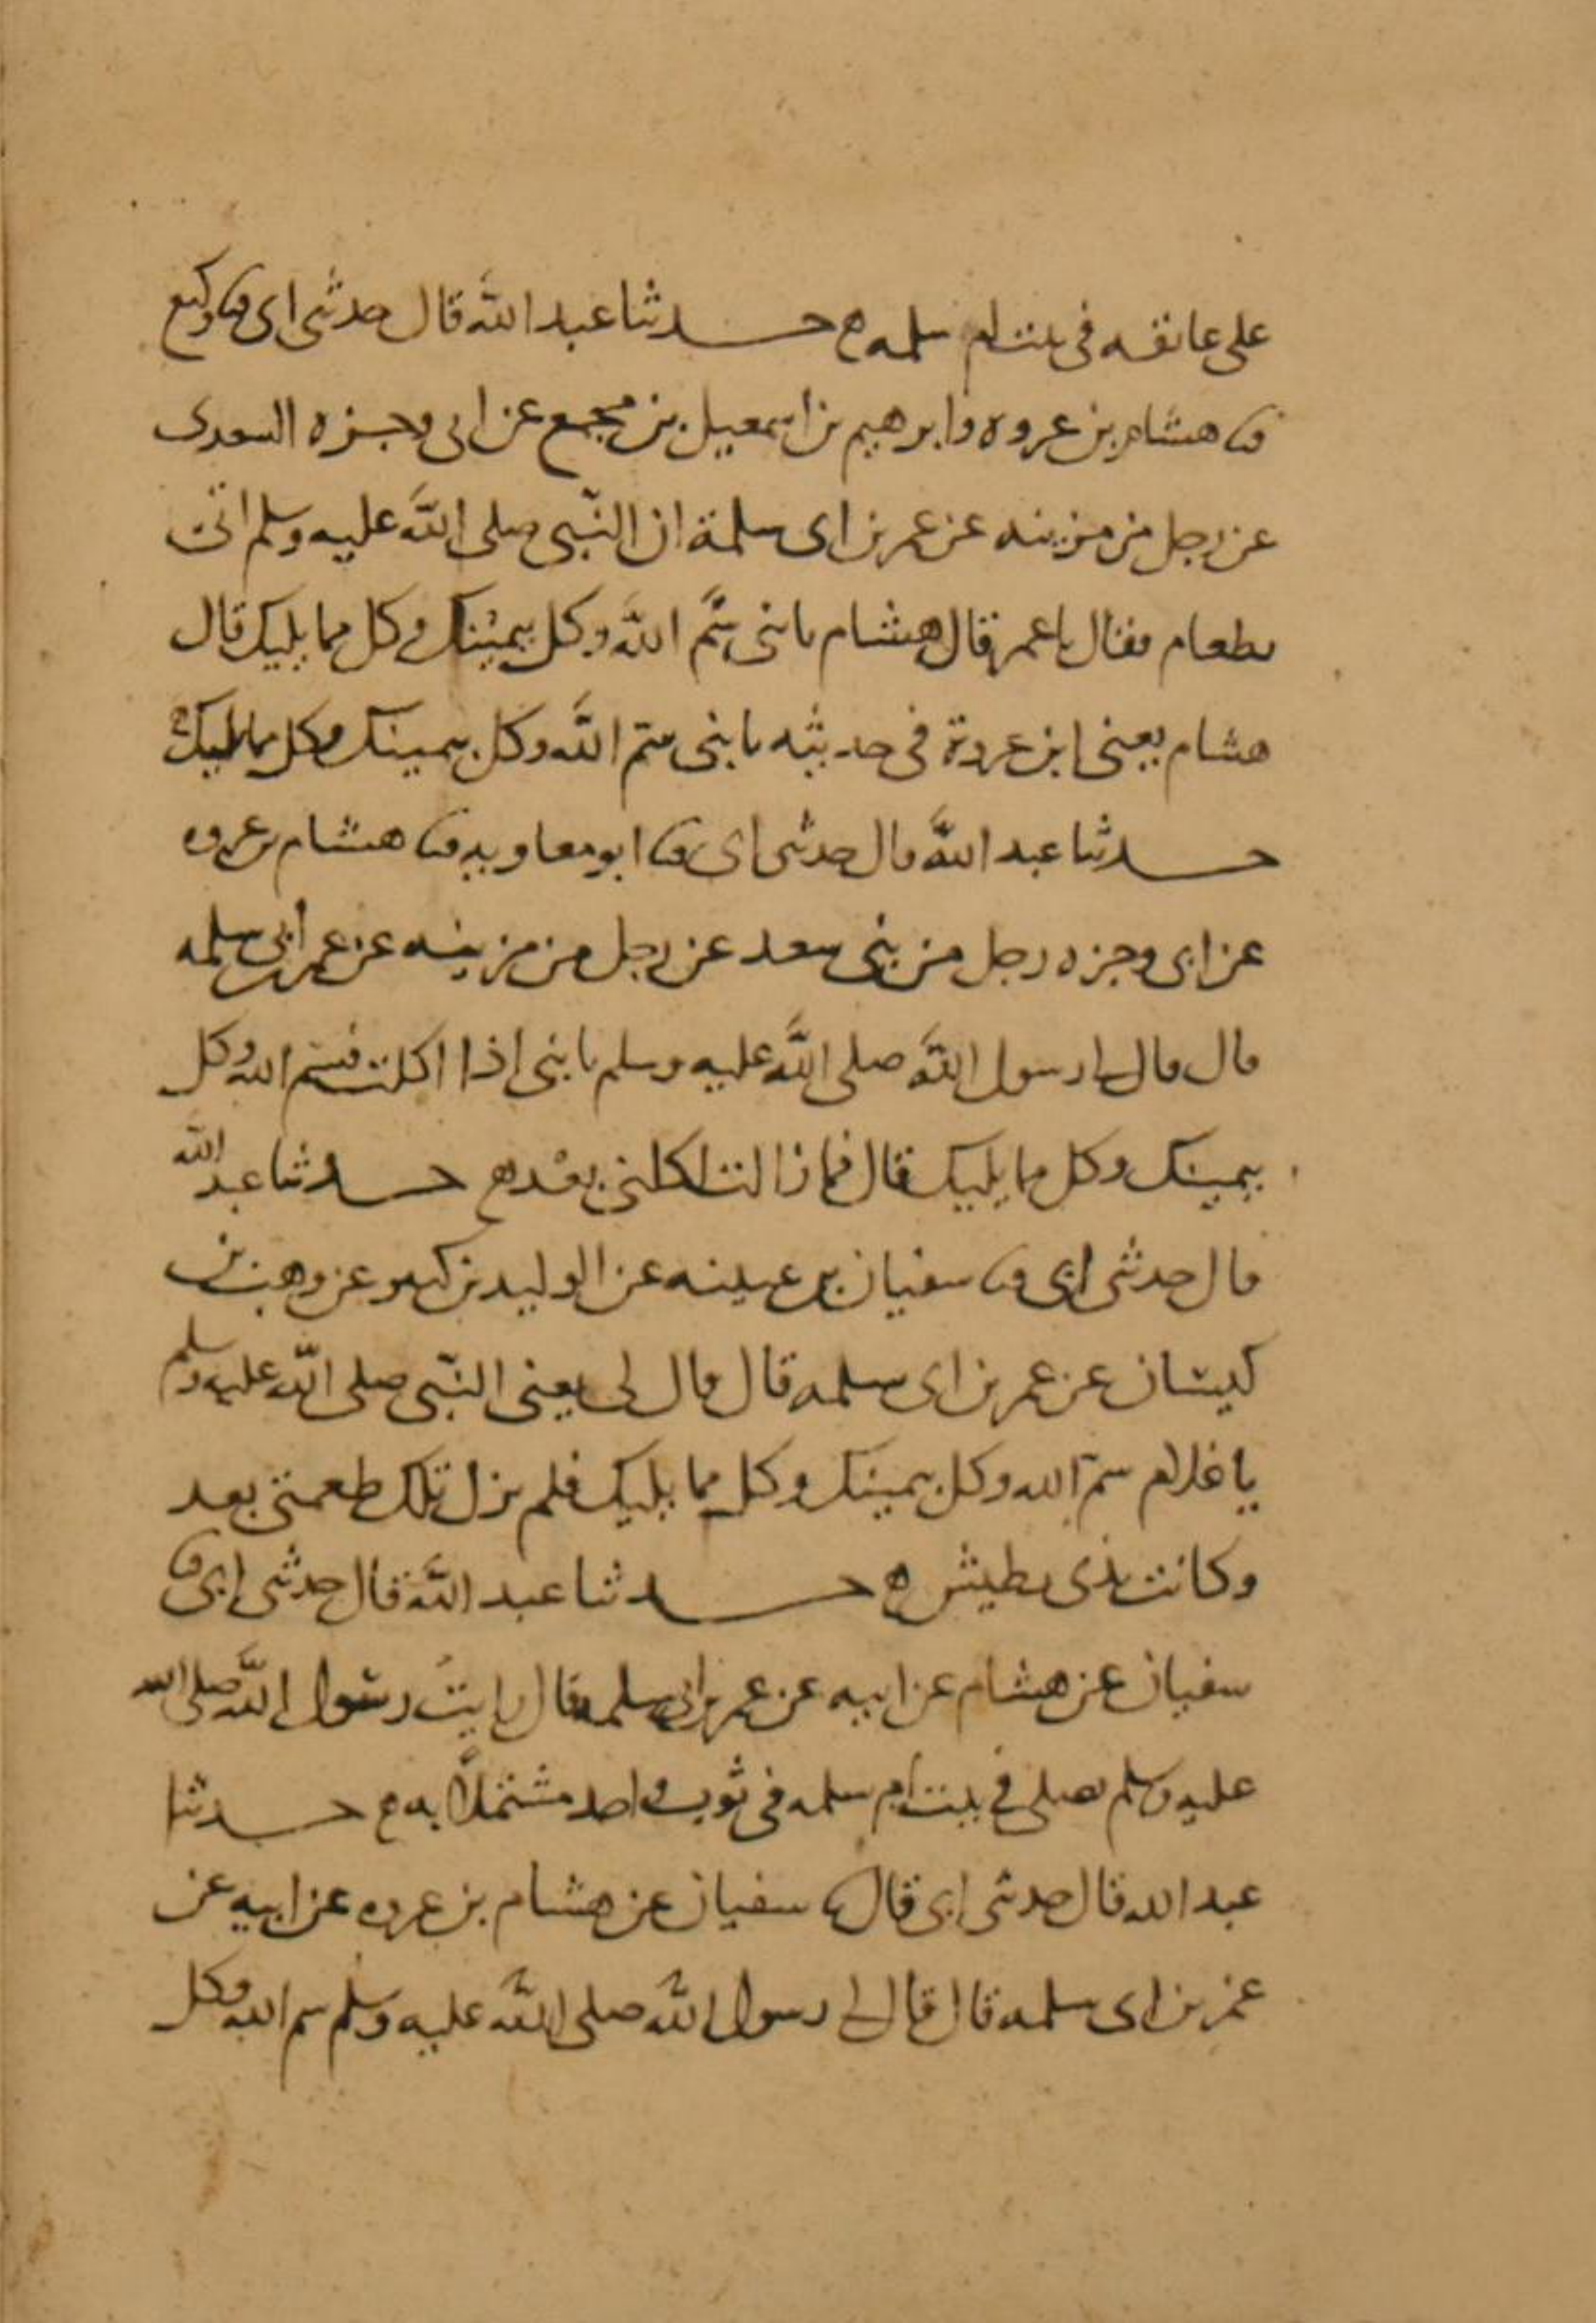 على عاتقه فى بيت ام سلمه ح حدثنا عبد الله قال حدثنى ابى ثنا وكيع
ثنا هشام بن عروه وابرهيم بن اسمعيل بن مجمع عن ابى وجزه السعدى
عن رجل من مزينه عن عمر بن ابى سلمة ان النبى صلى الله عليه وسلم اتى
بطعام فقال يا عمر قال هشام يا بنى سم الله وكل بيمينك وكل مما يليك قال
هشام يعنى ابن عروة فى حديثه يا بنى سم الله وكل بيمينك وكل مما يليك
حدثنا عبد الله قال حدثنى ابى ثنا ابو معاويه ثنا هشام بن عروه
عن ابى وجزه رجل من بنى سعد عن رجل من مزينه عن عمر بن ابى سلمه
قال قال لى رسول الله صلى الله عليه وسلم يا بنى اذا اكلت فسم الله وكل
بيمينك وكل مما يليك قال فما زالت اكلتى بعد ح حدثنا عبد الله
قال حدثنى ابى ثنا سفيان بن عيينه عن الوليد بن كثير عن وهب بن
كيسان عن عمر بن ابى سلمه قال قال لى يعنى النبى صلى الله عليه وسلم
يا غلام سم الله وكل بيمينك وكل مما يليك فلم تزل تلك طعمتى بعد
وكانت يدى تطيش ح حدثنا عبد الله قال حدثنى ابى ثنا
سفيان عن هشام عن ابيه عن عمر بن ابى سلمه قال رايت رسول الله صلى الله
عليه وسلم يصلى فى بيت ام سلمه فى ثوب واحد مشتملا به ح حدثنا
عبد الله قال حدثنى ابى قال ثنا سفيان عن هشام بن عروه عن ابيه عن
عمر بن ابى سلمه قال قال لى رسول الله صلى الله عليه وسلم سم الله وكل